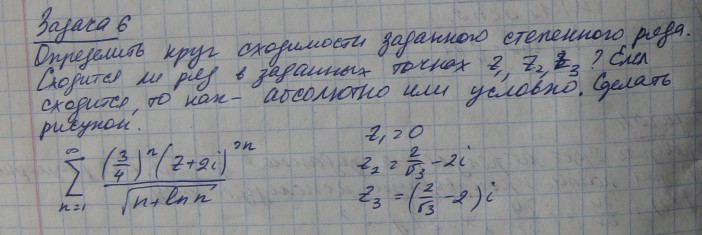 Задача 6
Определить круг сходимости заданного степенного ряда.
Сходится ли ряд в заданных точках z₁, z₂, z₃? Если
сходится, то как - абсолютно или условно. Сделать
рисунок.
∑_{n=1}^{∞} ((3/4)^n (z+2i)^{2n}) / √(n+ln n)
z₁ = 0
z₂ = 2/√3 - 2i
z₃ = (2/√3 - 2)i